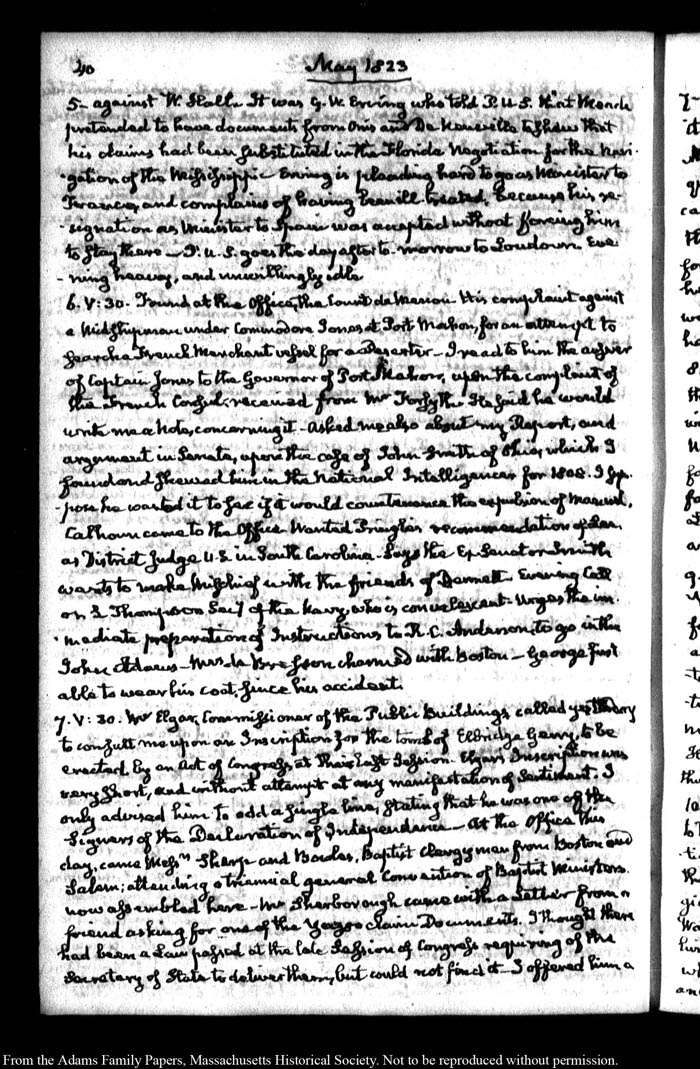 40
May 1823
5- against W. Hall. It was G. W. Erving who told P. U. S. that Meade
pretended to have documents from Onis and De Neuville to shew that
his claims had been substituted in the Florida Negotiation for the Navi-
-gation of the Mississippi- Erving is pleading hard to go as Minister to
France, and complains of having been ill treated, because his re-
-signation as Minister to Spain was accepted without forcing him
to stay there - P. U. S. goes the day after to-morrow to Loudoun. Eve
-ning heavy, and unwillingly idle
6. V: 30. Found at the Office, the Count de Menou. His complaint against
a Midshipman under Commodore Jones at Port Mahon, for an attempt to
search a French Merchant vessel for a Deserter - I read to him the answer
of Captain Jones to the Governor of Port Mahon, upon the complaint of
the French Consul; received from Mr Forsyth. He said he would
write me a Note, concerning it - Asked me also about my Report, and
argument in Senate, upon the case of John Smith of Ohio, which I
found and shewed him in the National Intelligencer for 1808. I sup-
-pose he wanted it to see if it would countenance the expulsion of Manuel.
Calhoun came to the Office. Wanted Pringle's recommendation of Lee.
as District Judge U. S. in South Carolina. Says the Ex Senator Smith
wants to make Mischief with the friends of Bennett. Evening Call
on S. Thompson Secy of the Navy, who is convalescent. Urges the im-
-mediate preparation of Instructions to R. C. Anderson, to go in the
John Adams - de Bresson charmed with Boston - George first
able to wear his coat, since his accident.
7. V: 30. Mr Elgar, Commissioner of the Public Buildings called yesterday
to consult me upon an Inscription for the tomb of Elbridge Gerry, to be
erected by an Act of Congress at their last Session. Elgar's Inscription was
very short, and without attempt at any manifestation of Sentiment. I
only advised him to add a single line, stating that he was one of the
Signers of the Declaration of Independence - At the Office this
day, came Messrs Sharp and Bowles, Baptist Clergymen from Boston and
Salem; attending a triennial general Convention of Baptist Ministers
now assembled here - Mr Sherborough came with a Letter from a
friend asking for one of the Yazoo claim Documents. I thought there
had been a Law passed at the late Session of Congress requiring of the
Secretary of State to deliver them, but could not find it - I offered him a
From the Adams Family Papers, Massachusetts Historical Society. Not to be reproduced without permission.